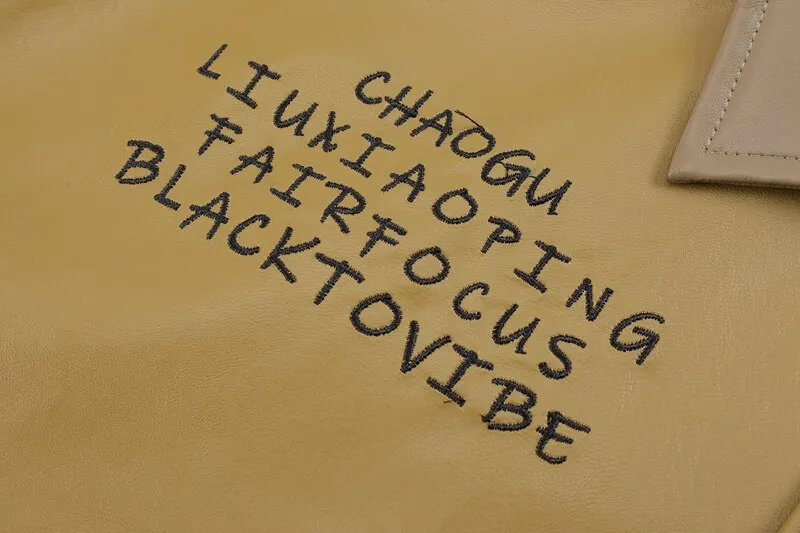 CHAOGU
LIUXIAOPING
FAIRFOCUS
BLACKTOVIBE